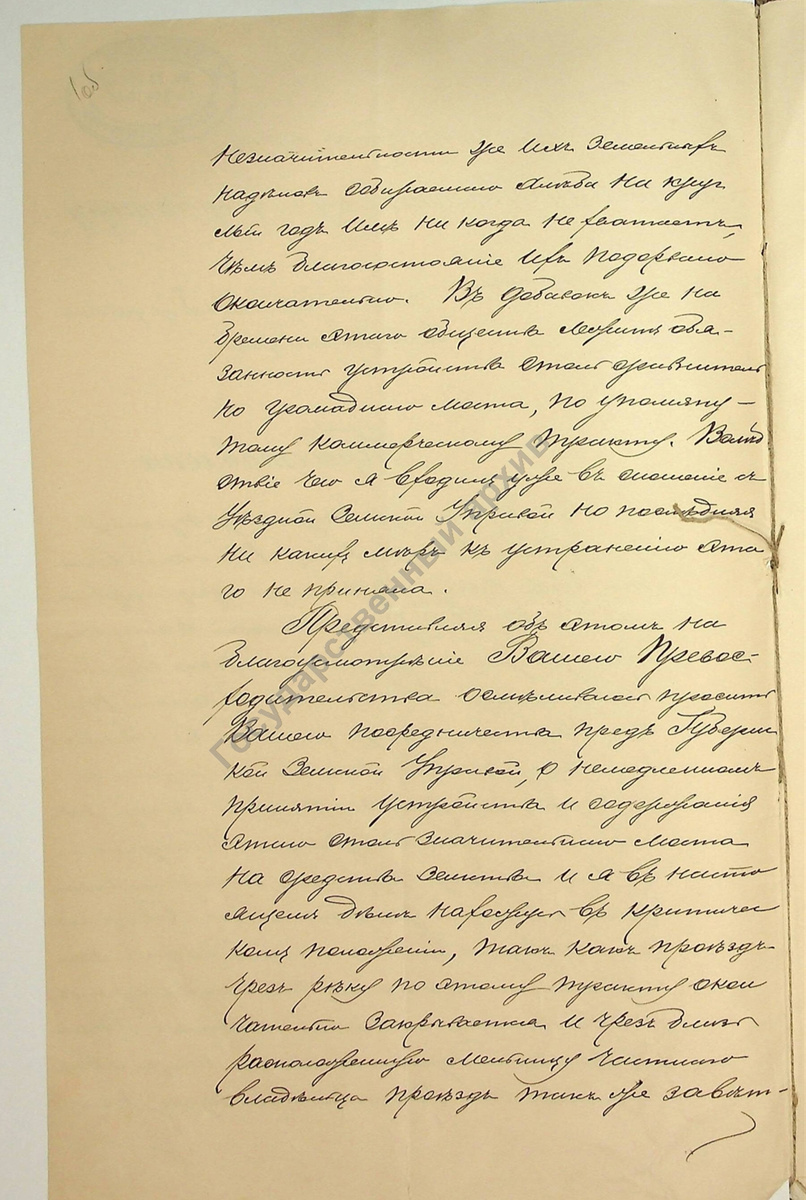 10об.
незначительности же ихъ земельныхъ
надѣловъ собираемаго хлѣба на круг
лый годъ имъ ни когда не хватаетъ,
чѣмъ благосостояніе ихъ подорвано
окончательно. Въ добавокъ же на
бремени этого общества лежитъ обя-
занность устройства столь сравнитель
но громаднаго моста, по упомяну-
тому коммерческому тракту. Вслѣд
ствіе чего я входилъ уже въ сношеніе съ
Уѣздной Земской Управой но послѣдняя
ни какихъ мѣръ къ устраненію это
го не приняла.
Представляя объ этомъ на
благоусмотрѣніе Вашего Превос-
ходительства осмѣливаюсь просить
Вашего посредничества предъ Губернс
кой Земской Управой, о немедленномъ
принятіи устройства и содержанія
этого столь значительнаго моста
на средства Земства и я въ насто
ящемъ дѣлѣ нахожусь въ критичес
комъ положеніи, такъ какъ проѣздъ
чрезъ рѣку по этому тракту окон
чательно закрывается и чрезъ близъ
расположенную мельницу частнаго
владѣльца проѣздъ такъ же завѣт-
Государственный архив